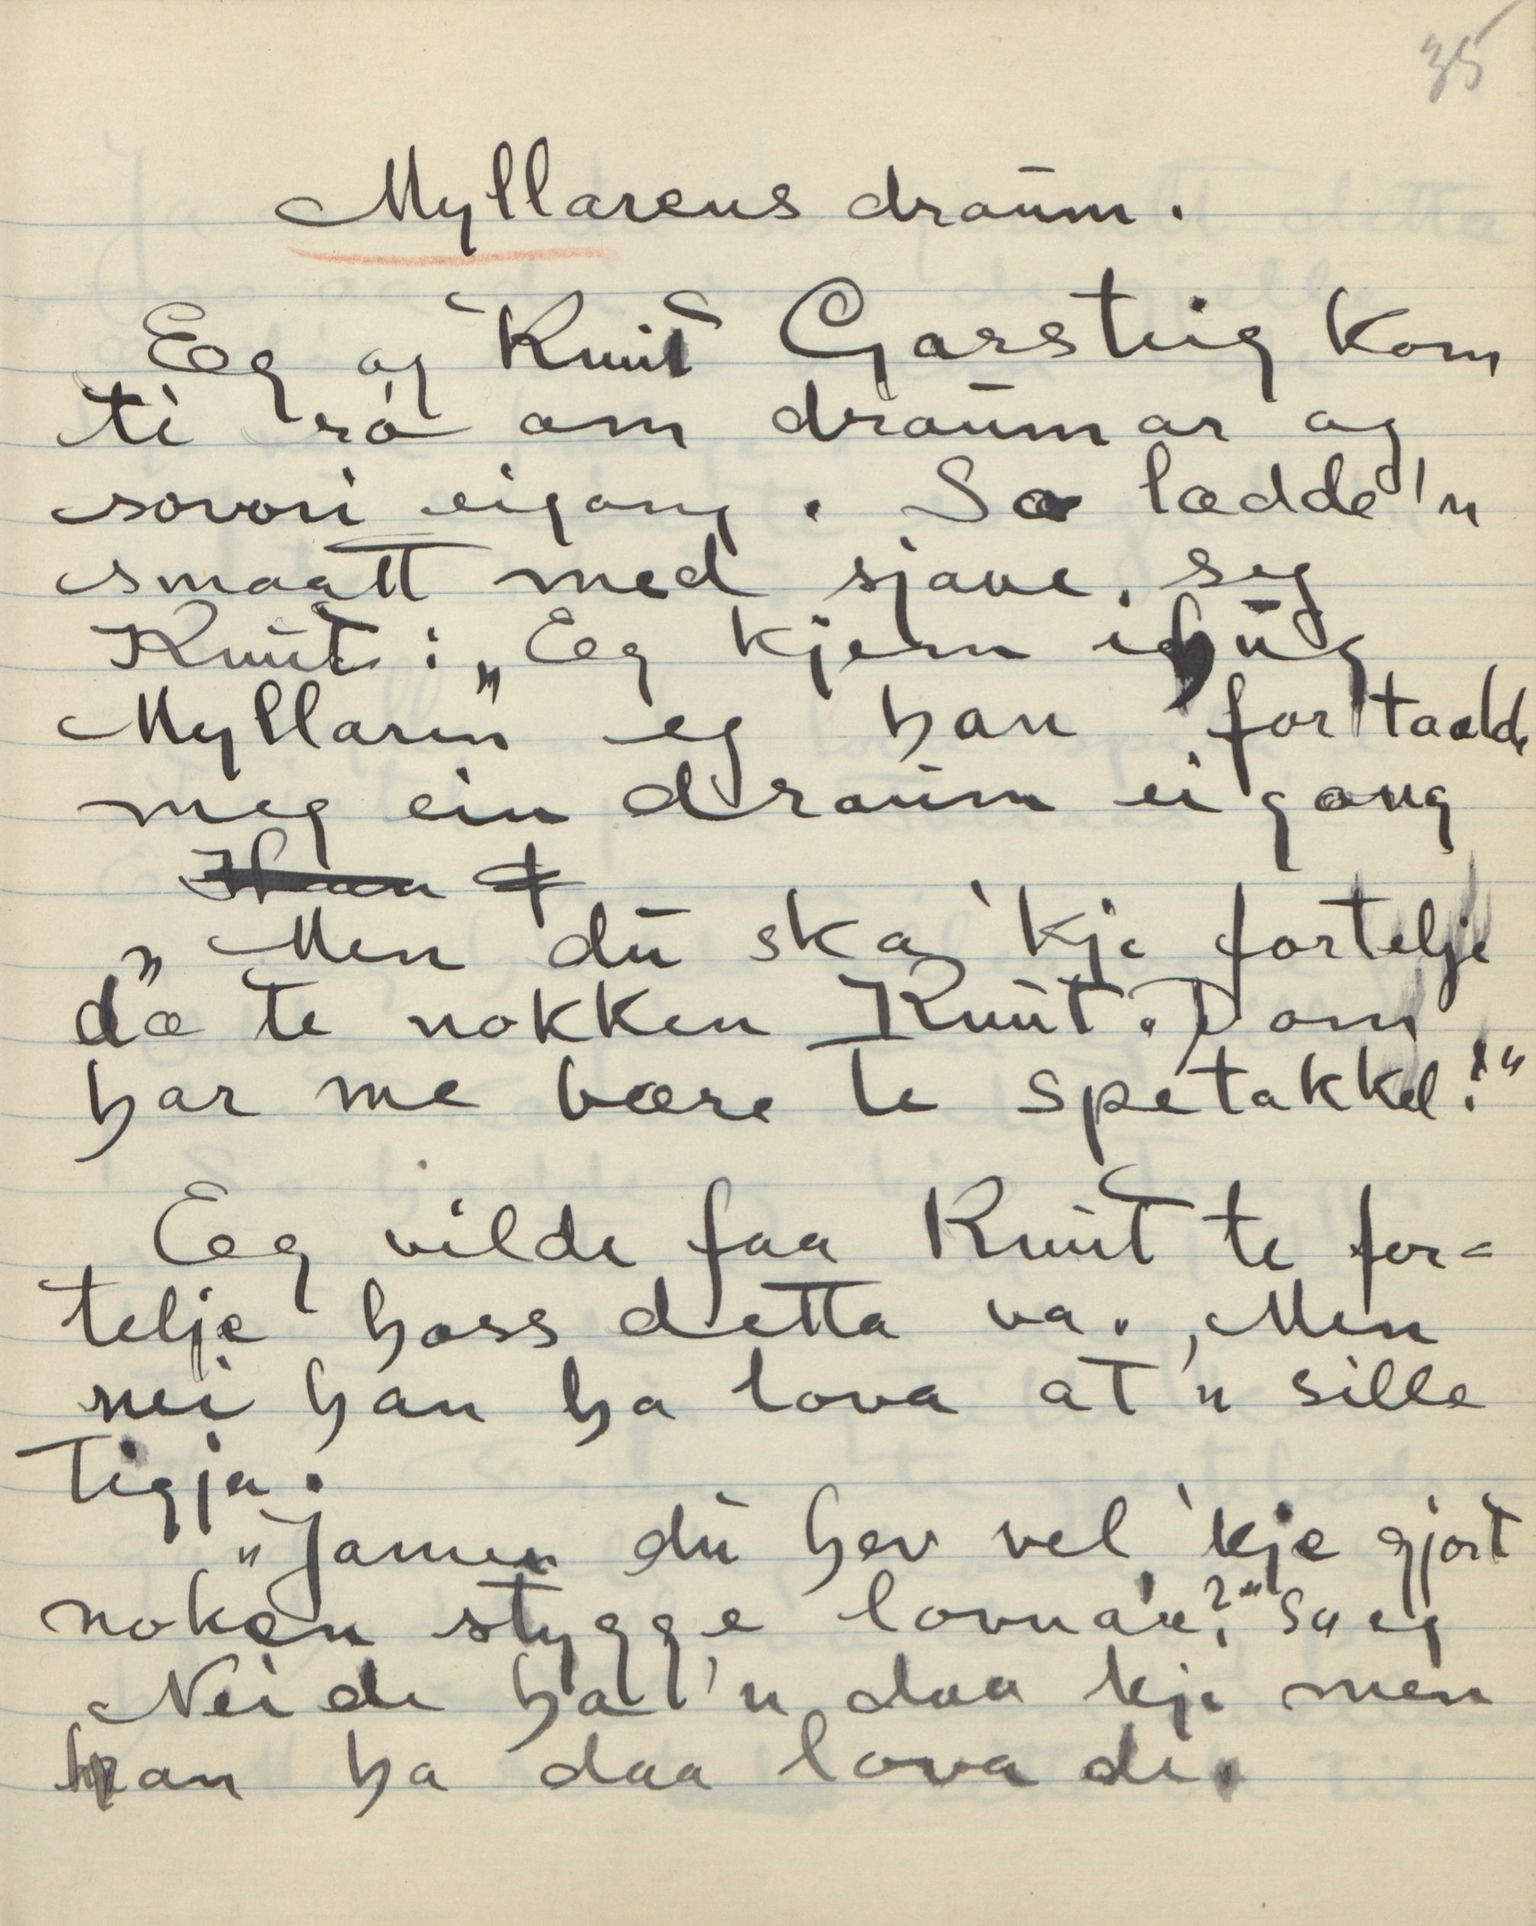 35
Myllarens draum.
Eg og Knut Garsteig kom
ti rø om draumar og
sovori eigong. Sa lædde'n
smaatt med sjave. seg
Knut: „Eg kjem ihug
Myllaren" eg han fortaalde
meg ein draum eigong
„Men du ska 'kje fortelje
dæ te nokken Knut. Dom
har me bære te spetakkel!"
Eg vilde faa Knut te for=
telje hoss detta va. Men
nei han ha lova at'n sille
tigja.
"Jamen du hev vel 'kje gjort
noken stygge lovnar?" sa eg
Nei de ha 'n daa kje men
han ha daa lova de.